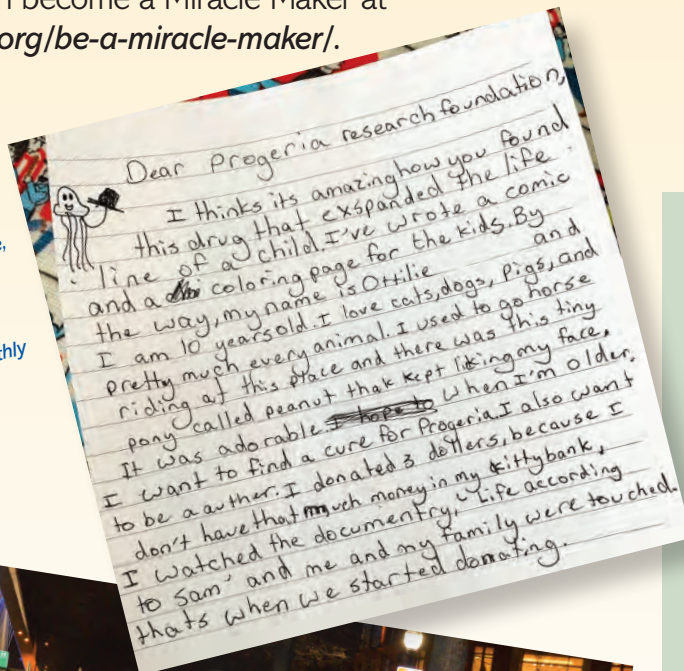 n become a Miracle Maker at
org/be-a-miracle-maker/.
e,
thly
Dear Progeria research foundation,
I thinks its amazing how you found
this drug that exspanded the life
line of a child. I've wrote a comic
and a coloring page for the kids. By
the way, my name is Ottilie and
I am 10 years old. I love cats, dogs, pigs, and
pretty much every animal. I used to go horse
riding at this place and there was this tiny
pony called peanut thak kept liking my face.
It was adorable. I hope to when I'm older.
I want to find a cure for Progeria. I also want
to be a auther. I donated 3 dollers, because I
don't have that much money in my kittybank,
I watched the documentry, "Life according
to Sam' and me and my family were touched.
thats when we started donating.